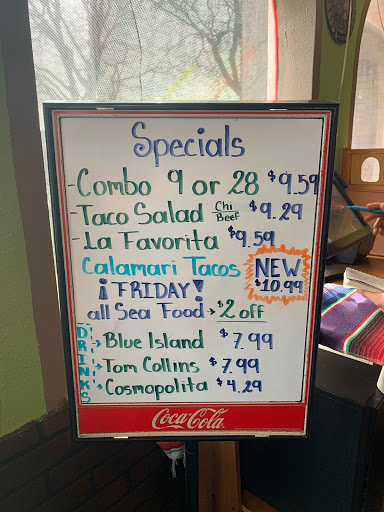 Specials
-Combo 9 or 28 $9.59
-Taco Salad Chi Beef $9.29
-La Favorita $9.59
Calamari Tacos NEW $10.99
¡FRIDAY!
all Sea Food → $2 off
DRINKS
Blue Island $7.99
Tom Collins $7.99
Cosmopolita $4.29
Coca-Cola